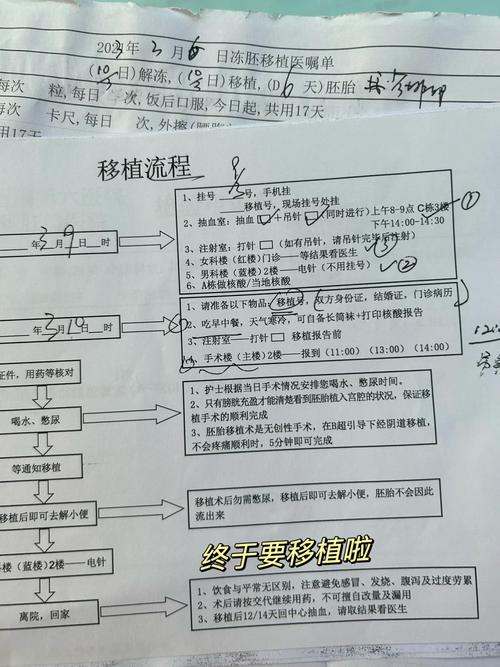 2023年3月6日冻胚移植医嘱单
(10/3日)解冻,(10/3)移植,(D6天)胚胎
每次 粒,每日 次,饭后口服,今日起,共用17天
每次 卡尺,每日 次,外擦
用17天
移植流程
1、挂号 号,手机挂
移植号,现场挂号处挂
2、抽血室:抽血☑+吊针☐(同时进行)上午8-9点 C栋3楼 ①
下午14:00-14:30
3、注射室:打针☐(如有吊针,请吊针完毕后注射)
4、女科楼(红楼)门诊——等结果看医生 ③
5、男科楼(蓝楼)2楼——电针(不用挂号) ②
6、A栋做核酸/当地核酸
年3月9日 时
1、请准备以下物品:移植号,双方身份证,结婚证,门诊病历
2、吃早中餐,天气寒冷,可自备长筒袜+打印核酸报告
3、注射室——打针☐ 移植报告前
4、手术楼(主楼)2楼——报到(11:00)(13:00)(14:00)
年3月10日 时
证件,用药等核对
1、护士根据当日手术情况安排您喝水、憋尿时间。
2、只有膀胱充盈才能清楚看到胚胎植入宫腔的状况,保证移
植手术的顺利完成
3、胚胎移植术是无创性手术,在B超引导下经阴道移植,
不会疼痛顺利时,5分钟即可完成
喝水、憋尿
等通知移植
移植后即可去解小便
移植术后勿需憋尿,移植后即可去解小便,胚胎不会因此
流出来
终于要移植啦
科楼(蓝楼)2楼——电针
1、饮食与平常无区别,注意避免感冒、发烧、腹泻及过度劳累
2、术后请按交代继续用药,不可擅自改量及漏用
3、移植后12/14天回中心抽血,请取结果看医生
离院,回家